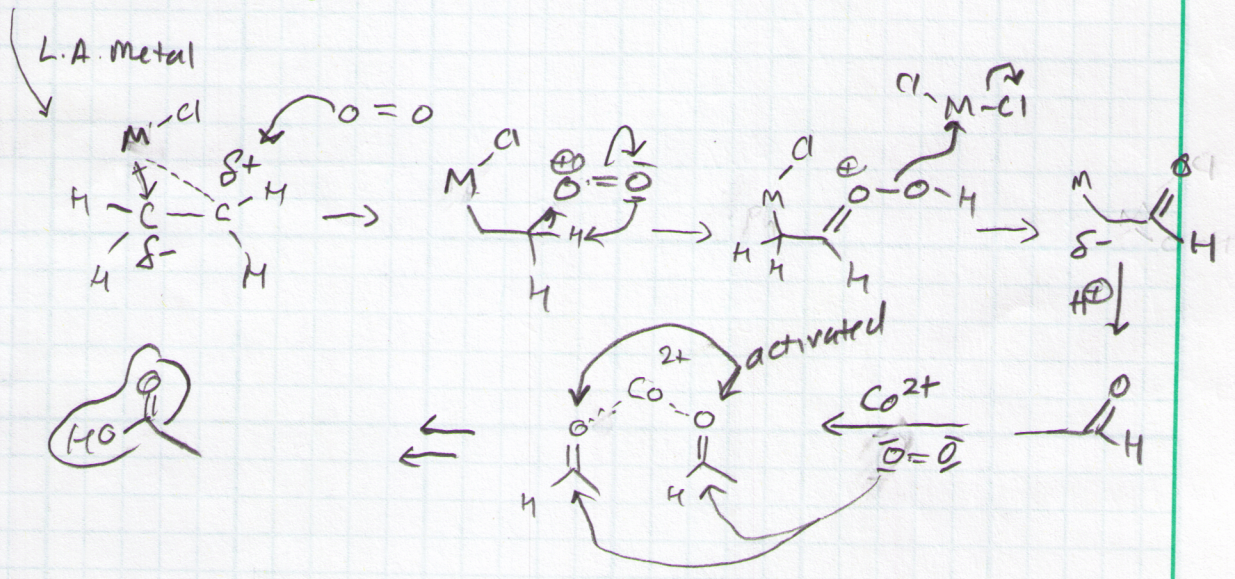 L.A. Metal
M Cl
O = O
δ+
H C C H
δ-
H H
Cl
M
⊕
O = O
H
H
Cl
M
⊕
O - O - H
H H
H
Cl M - Cl
M
O
δ-
H
H⊕
O
H
Co2+
O = O
activated
2+
Co
O O
H H
O
HO